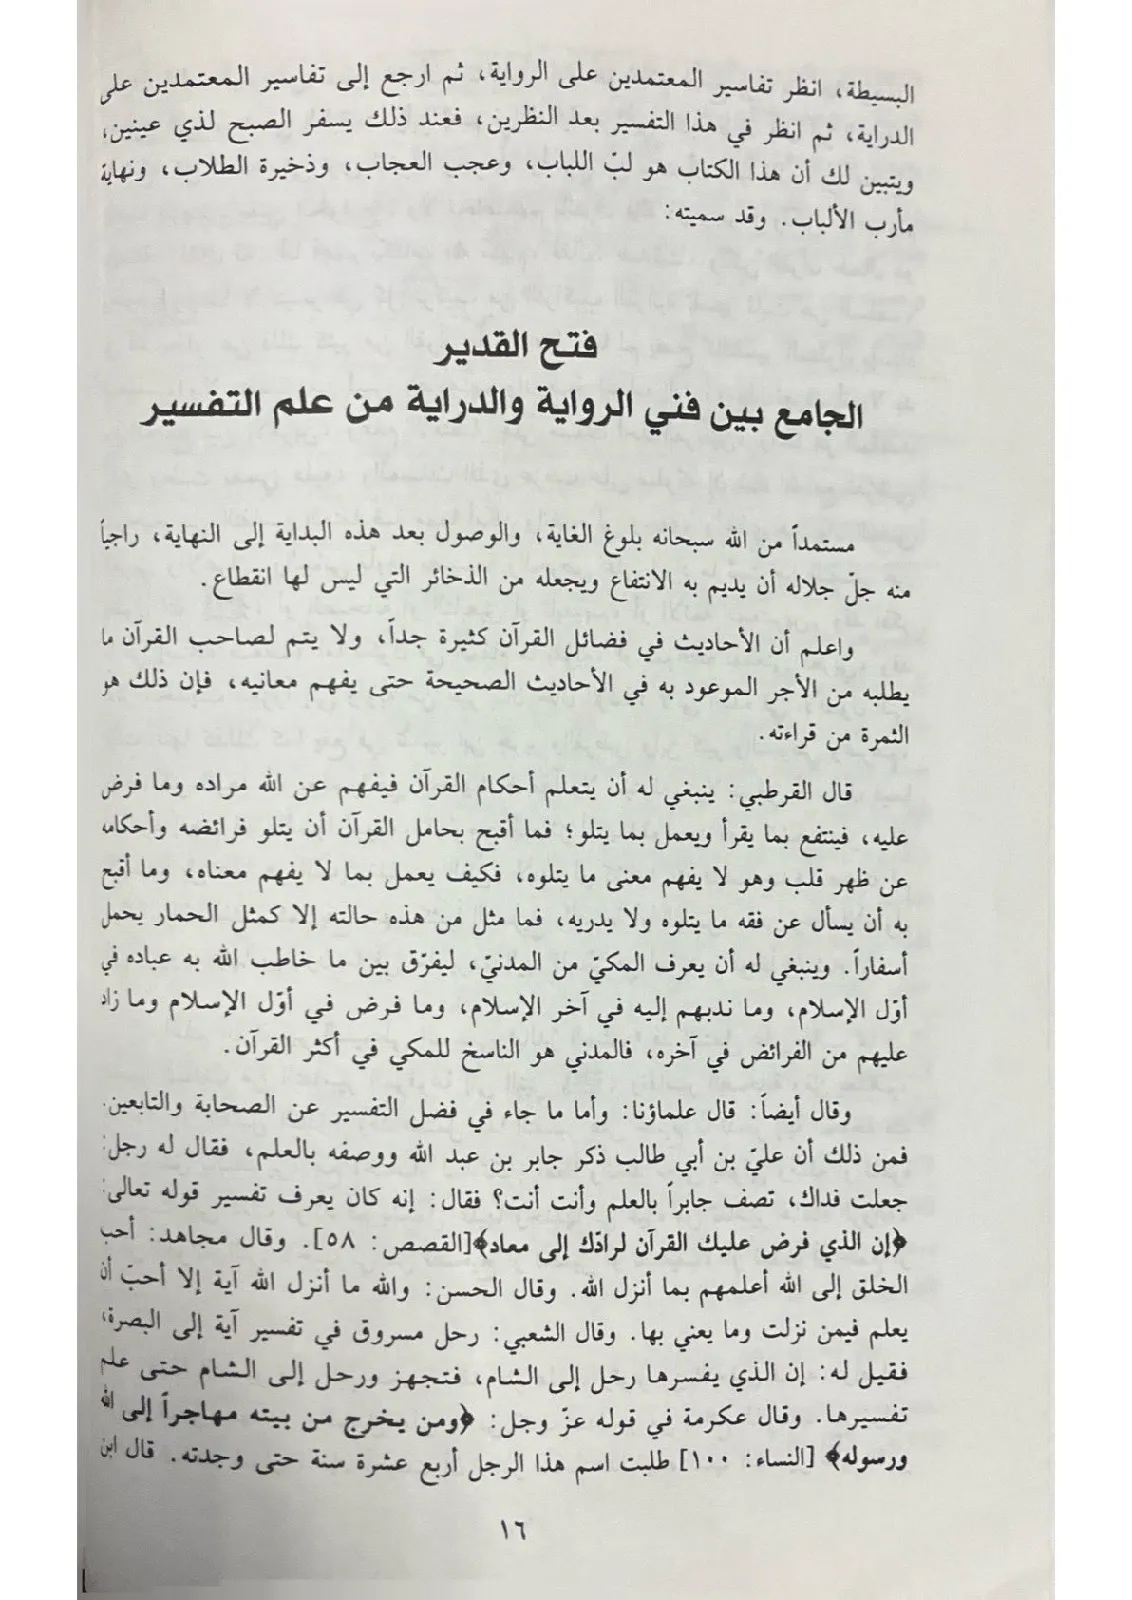 البسيطة، انظر تفاسير المعتمدين على الرواية، ثم ارجع إلى تفاسير المعتمدين على
الدراية، ثم انظر في هذا التفسير بعد النظرين، فعند ذلك يسفر الصبح لذي عينين،
ويتبين لك أن هذا الكتاب هو لبّ اللباب، وعجب العجاب، وذخيرة الطلاب، ونهاية
مأرب الألباب. وقد سميته:
فتح القدير
الجامع بين فني الرواية والدراية من علم التفسير
مستمداً من الله سبحانه بلوغ الغاية، والوصول بعد هذه البداية إلى النهاية، راجياً
منه جلّ جلاله أن يديم به الانتفاع ويجعله من الذخائر التي ليس لها انقطاع.
واعلم أن الأحاديث في فضائل القرآن كثيرة جداً، ولا يتم لصاحب القرآن ما
يطلبه من الأجر الموعود به في الأحاديث الصحيحة حتى يفهم معانيه، فإن ذلك هو
الثمرة من قراءته.
قال القرطبي: ينبغي له أن يتعلم أحكام القرآن فيفهم عن الله مراده وما فرض
عليه، فينتفع بما يقرأ ويعمل بما يتلو؛ فما أقبح بحامل القرآن أن يتلو فرائضه وأحكامه
عن ظهر قلب وهو لا يفهم معنى ما يتلوه، فكيف يعمل بما لا يفهم معناه، وما أقبح
به أن يسأل عن فقه ما يتلوه ولا يدريه، فما مثل من هذه حالته إلا كمثل الحمار يحمل
أسفاراً. وينبغي له أن يعرف المكيّ من المدنيّ، ليفرّق بين ما خاطب الله به عباده في
أوّل الإسلام، وما ندبهم إليه في آخر الإسلام، وما فرض في أوّل الإسلام وما زاد
عليهم من الفرائض في آخره، فالمدني هو الناسخ للمكي في أكثر القرآن.
وقال أيضاً: قال علماؤنا: وأما ما جاء في فضل التفسير عن الصحابة والتابعين،
فمن ذلك أن عليّ بن أبي طالب ذكر جابر بن عبد الله ووصفه بالعلم، فقال له رجل:
جعلت فداك، تصف جابراً بالعلم وأنت أنت؟ فقال: إنه كان يعرف تفسير قوله تعالى:
﴿إن الذي فرض عليك القرآن لرادّك إلى معاد﴾[القصص: ٥٨]. وقال مجاهد: أحب
الخلق إلى الله أعلمهم بما أنزل الله. وقال الحسن: والله ما أنزل الله آية إلا أحبّ أن
يعلم فيمن نزلت وما يعني بها. وقال الشعبي: رحل مسروق في تفسير آية إلى البصرة،
فقيل له: إن الذي يفسرها رحل إلى الشام، فتجهز ورحل إلى الشام حتى علم
تفسيرها. وقال عكرمة في قوله عزّ وجل: ﴿ومن يخرج من بيته مهاجراً إلى الله
ورسوله﴾ [النساء: ١٠٠] طلبت اسم هذا الرجل أربع عشرة سنة حتى وجدته. قال ابن
١٦